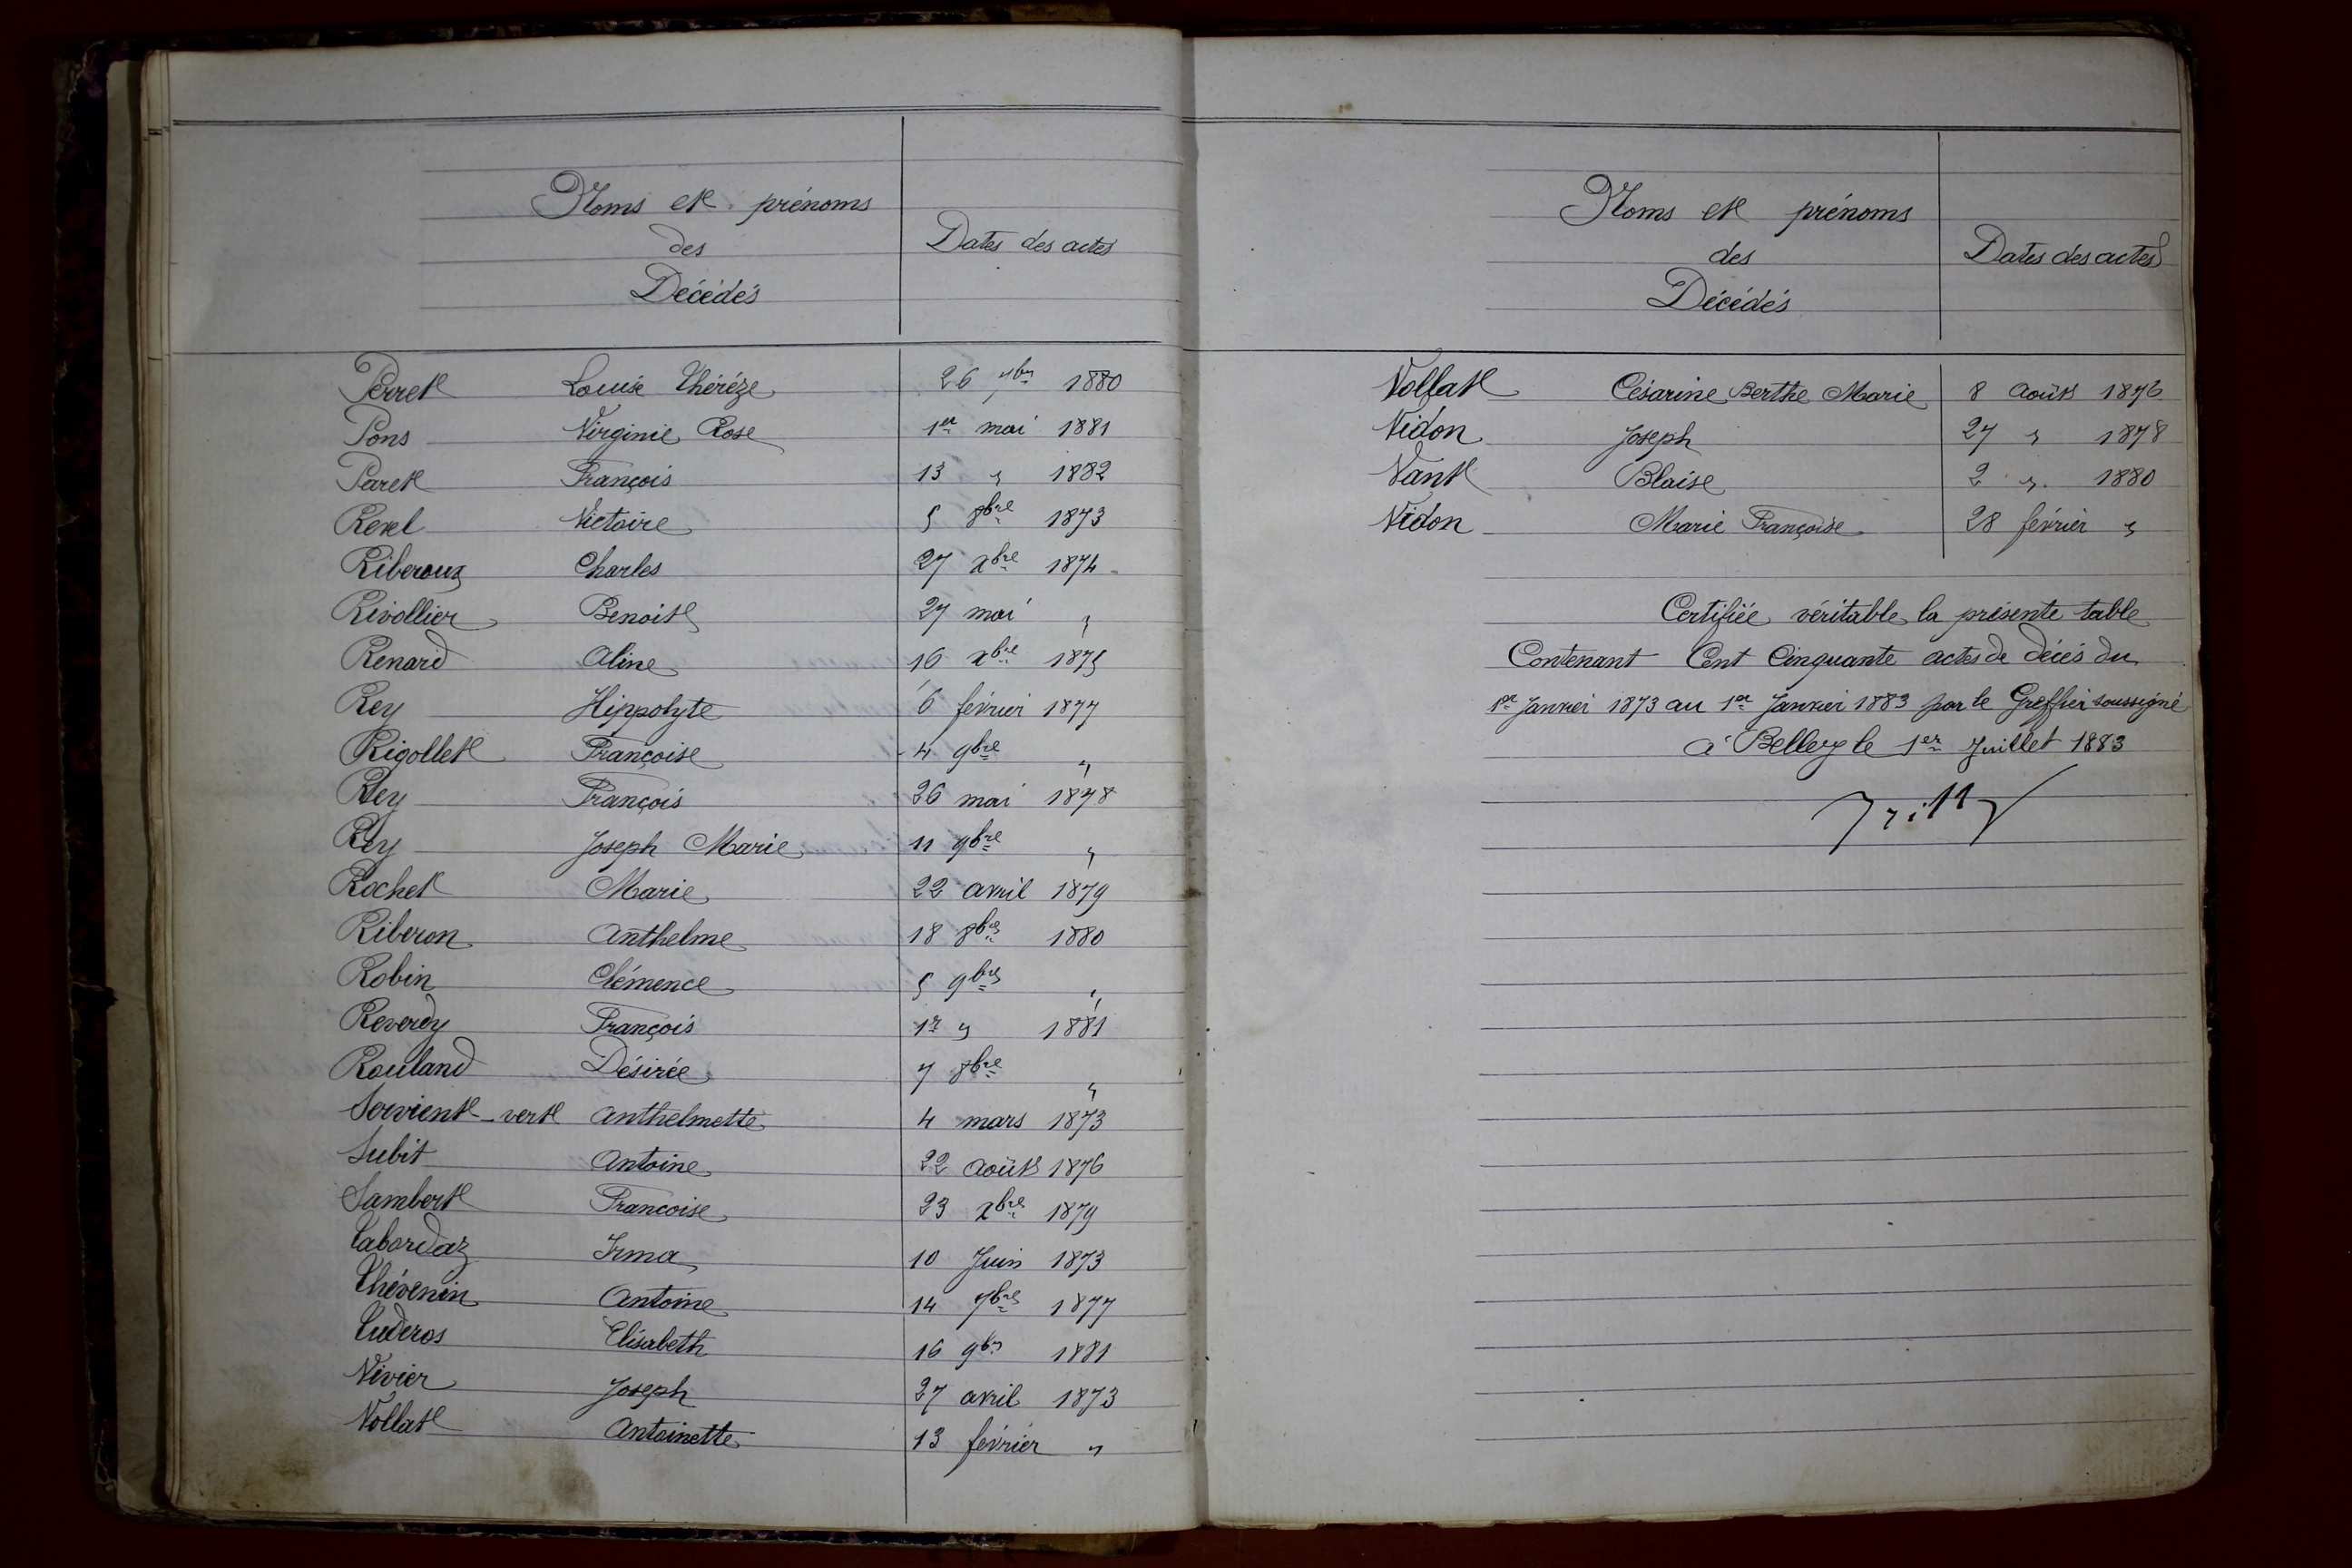 Noms et prénoms
des
Décédés
Dates des actes
Perret Louise Thérèze 26 7bre 1880
Pons Virginie Rose 1er mai 1881
Paret François 13 " 1882
Revel Victoire 5 8bre 1873
Riberoux Charles 27 xbre 1874
Rivollier Benoit 27 mai "
Renard Aline 16 xbre 1875
Rey Hippolyte 6 février 1877
Rigollet Françoise 4 9bre "
Rey François 26 mai 1878
Rey Joseph Marie 11 9bre "
Rochet Marie 22 avril 1879
Riberon Anthelme 18 8bre 1880
Robin Clémence 5 9bre "
Reverdy François 1er " 1881
Rouland Désirée 7 8bre "
Servient-vert Anthelmette 4 mars 1873
Subit Antoine 22 Août 1876
Sambert Francoise 23 xbre 1879
Tabordaz Irma 10 Juin 1873
Thévenin Antoine 14 7bre 1877
Tuderos Elisabeth 16 9bre 1881
Vivier Joseph 27 avril 1873
Vollat Antoinette 13 février "
Noms et prénoms
des
Décédés
Dates des actes
Vollat Césarine Berthe Marie 8 Août 1876
Vidon Joseph 27 " 1878
Vant Blaise 2 " 1880
Vidon Marie Françoise 28 février "
Certifiée véritable la présente table
Contenant Cent Cinquante actes de décés du
1er Janvier 1873 au 1er Janvier 1883 par le Greffier soussigné
à Belley le 1er Juillet 1883